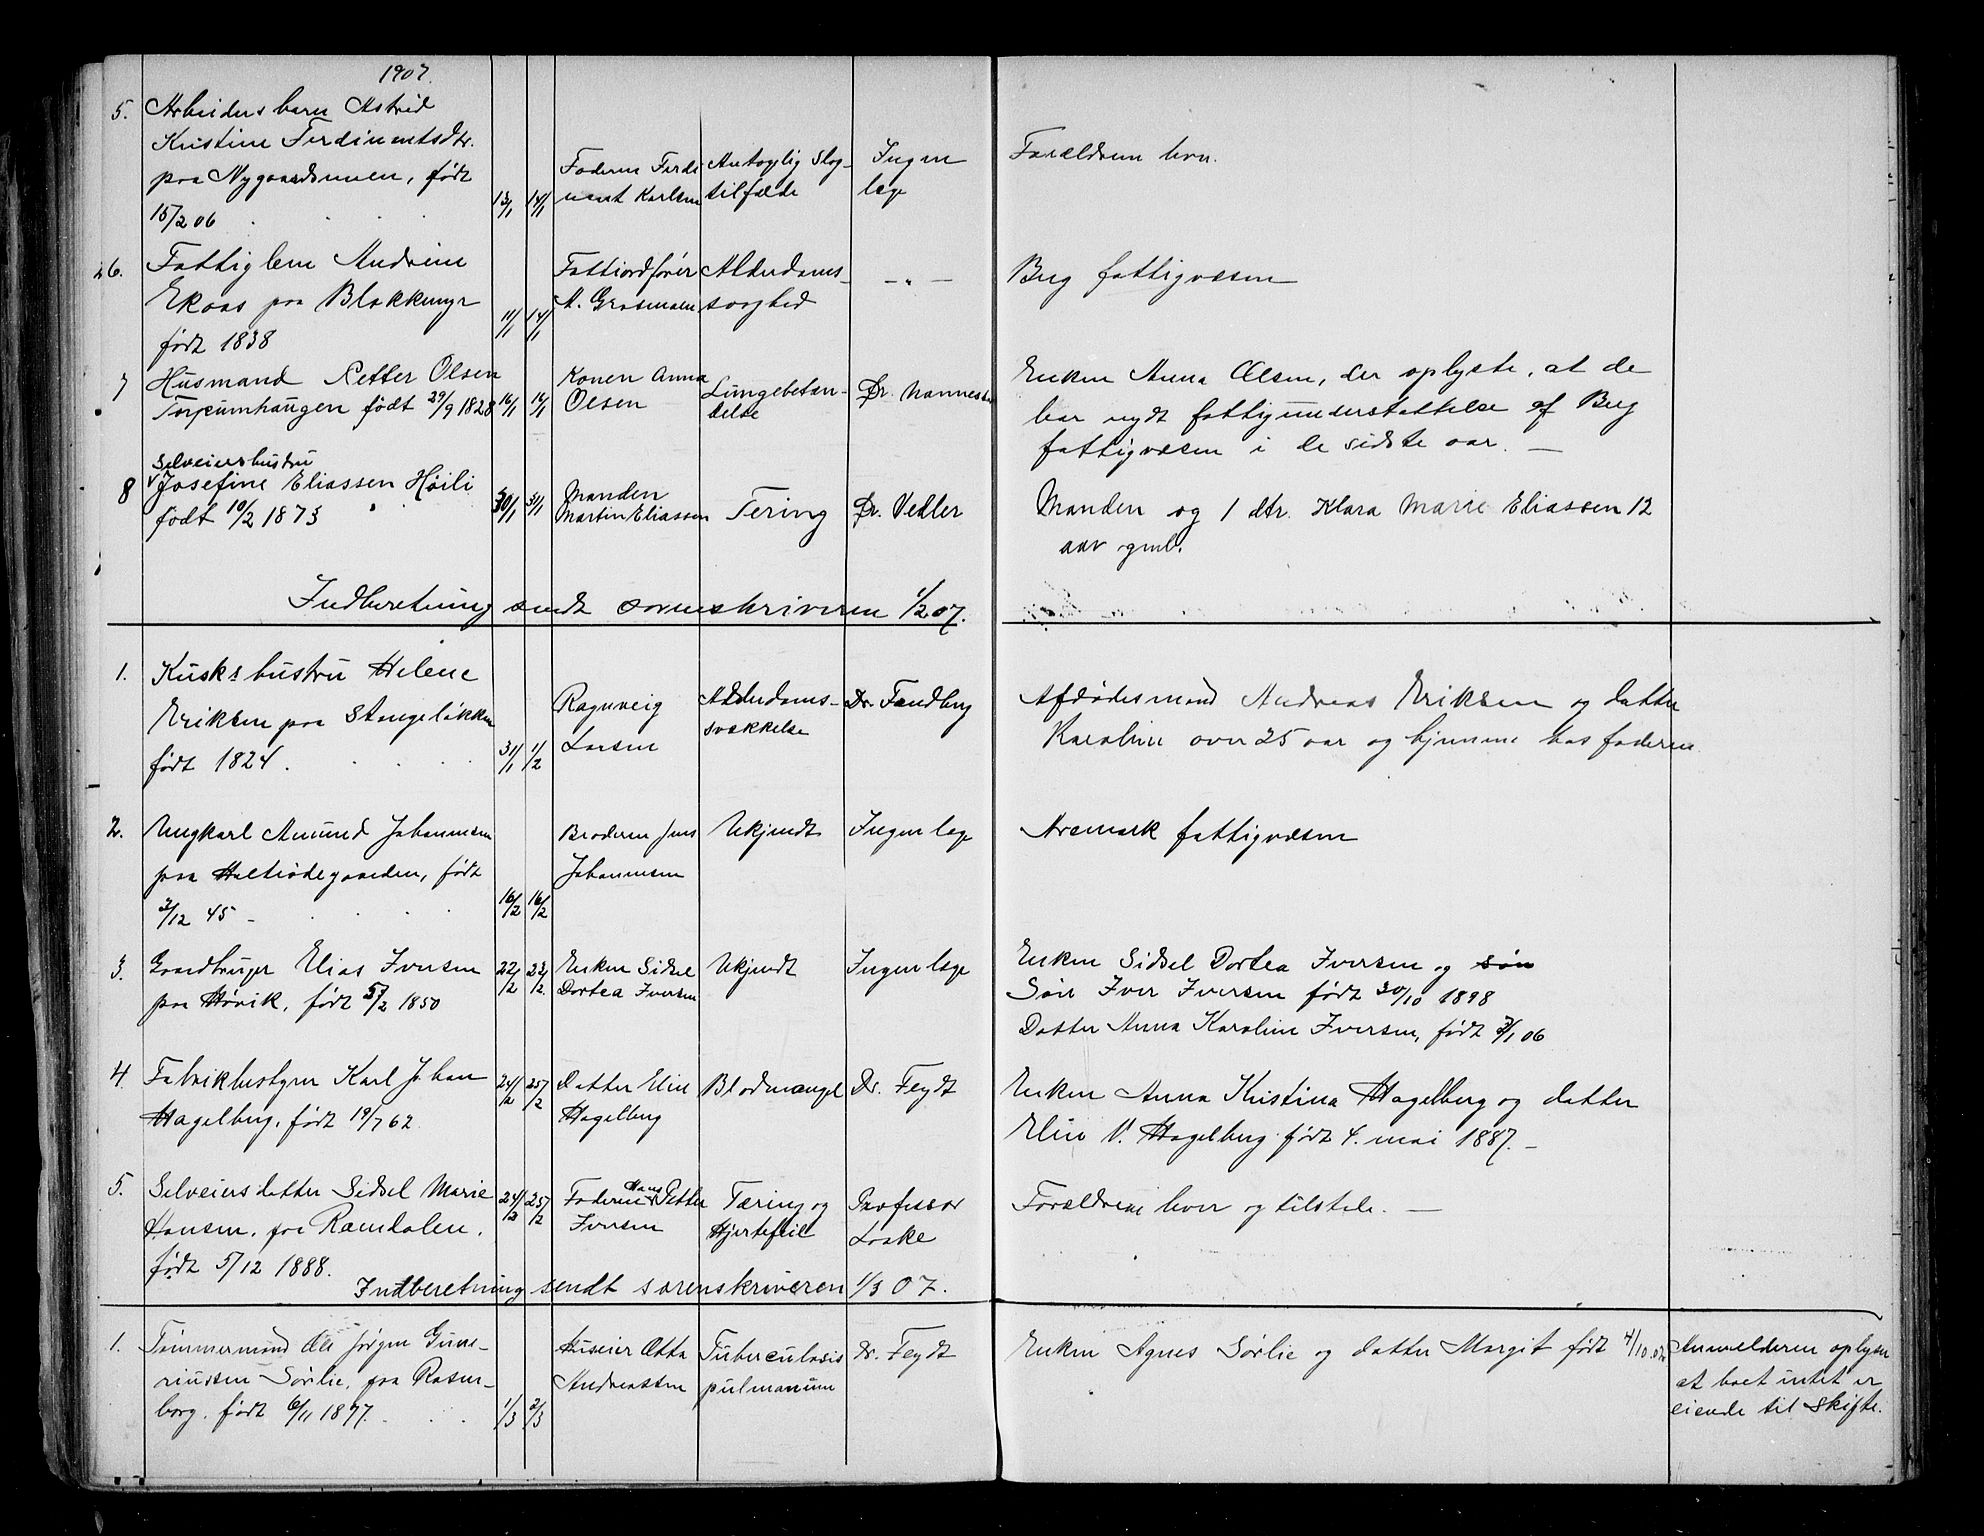 1907.
5. Arbeidersbarn Astrid
Kristine Ferdinantsdtr.
paa Nygaardsmuen, født
15/2 06 13/1 14/1 Faderen Ferdi-
nant Karlsen Antagelig Slag-
tilfælde Ingen
læge Forældrene lever.
6. Fattiglem Andrine
Ekaas paa Blakkmyr
født 1838 11/1 14/1 Fattiordfører
A. Grosmaen Alderdoms-
svaghed — " — Berg fattigvæsen
7 Husmand Petter Olsen
Torpumhaugen født 29/9 1828 16/1 16/1 Konen Anna
Olsen Lungebetæn-
delse Dr. Mannes Enken Anna Olsen, der oplyste, at de
har nydt fattigunderstøttelse af Berg
fattigvæsen i de sidste aar. —
8 Selveiershustru
Josefine Eliassen Høili
født 10/2 1873 30/1 31/1 Manden
Martin Eliassen Tering Dr. Vedler Manden og 1 dtr. Klara Marie Eliassen 12
aar gml.
Indberetning sendt sorenskriveren 1/2 07.
1. Kuskshustru Helene
Eriksen paa Stangeløkken
født 1824. 31/1 1/2 Ragnveig
Larsen Alderdoms-
svækkelse Dr. Fandberg Afdødes mand Andreas Eriksen og datter
Karoline over 25 aar og hjemme hos faderen
2. Ungkarl Amund Johannesen
paa Holtiødegaarden, født
3/12 45 – 16/2 16/2 Broderen Jens
Johannesen Ukjendt Ingen læge Aremark fattigvæsen
3. Gaardbruger Elias Iversen
paa Høvik, født 5/2 1850 22/2 22/2 Enken Sidsel
Dortea Iversen Ukjendt Ingen læge Enken Sidsel Dortea Iversen og søn
Søn Iver Iversen født 30/10 1898
Datter Anna Karoline Iversen, født 3/1 06
4. Fabrikbestyrer Karl Johan
Hagelberg, født 19/7 62 24/2 25/2 Datter Elin
Hagelberg Blodmangel Dr. Feydt Enken Anna Kristina Hagelberg og datter
Elin V. Hagelberg født 4. mai 1887. –
5. Selveiersdatter Sidsel Marie
Hansen, paa Ramdalen,
født 5/12 1888. 24/2 25/2 Faderen Hans Petter
Iversen Tæring og
Hjertefeil Professor
Laake Forældrene lever og tilstede. —
Indberetning sendt sorenskriveren 1/3 07.
1. Tømmermand Ole Jørgen Gune-
riussen Sørlie, paa Rosen-
borg, født 6/11 1877. 1/3 2/3 Huseier Otto
Andreassen Tuberculosis
pulmonum Dr. Feydt Enken Agnes Sørlie og datter Margit født 4/10.02 Anmelderen oplyser
at boet intet er
eiende til skifte.